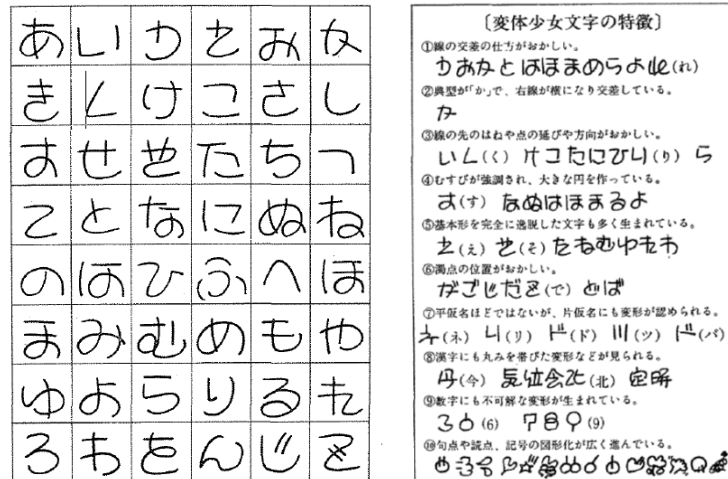 あいうえおか
きくけこさし
すせそたちつ
てとなにぬね
のはひふへほ
まみむめもや
ゆよらりるれ
ろわをんじで
〔変体少女文字の特徴〕
①線の交差の仕方がおかしい。
うおなとはほまめらよれ(れ)
②典型が「か」で、右線が横になり交差している。
か
③線の先のはねや点の延びや方向がおかしい。
いく(く) けこたにひり(り) ら
④むすびが強調され、大きな円を作っている。
す(す) なぬはほまるよ
⑤基本形を完全に逸脱した文字も多く生まれている。
え(え) そ(そ) たねむゆれわ
⑥濁点の位置がおかしい。
がごじだで(で) どば
⑦平仮名ほどではないが、片仮名にも変形が認められる。
ネ(ネ) リ(リ) ド(ド) ツ(ツ) パ(パ)
⑧漢字にも丸みを帯びた変形などが見られる。
今(今) 気位会北(北) 定
⑨数字にも不可解な変形が生まれている。
36(6) 789(9)
⑩句点や読点、記号の図形化が広く進んでいる。